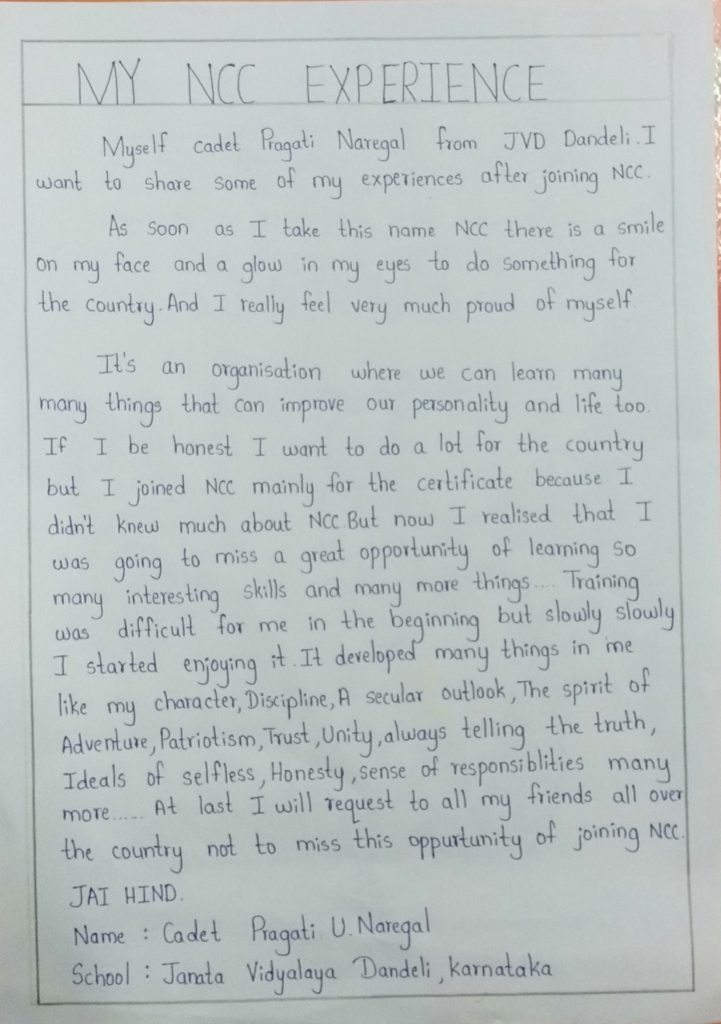 MY NCC EXPERIENCE
Myself cadet Pragati Naregal from JVD Dandeli. I
want to share some of my experiences after joining NCC.
As soon as I take this name NCC there is a smile
on my face and a glow in my eyes to do something for
the country. And I really feel very much proud of myself.
It's an organisation where we can learn many
many things that can improve our personality and life too.
If I be honest I want to do a lot for the country
but I joined NCC mainly for the certificate because I
didn't knew much about NCC. But now I realised that I
was going to miss a great opportunity of learning so
many interesting skills and many more things.... Training
was difficult for me in the beginning but slowly slowly
I started enjoying it. It developed many things in me
like my character, Discipline, A secular outlook, The spirit of
Adventure, Patriotism, Trust, Unity, always telling the truth,
Ideals of selfless, Honesty, sense of responsiblities many
more..... At last I will request to all my friends all over
the country not to miss this oppurtunity of joining NCC.
JAI HIND.
Name : Cadet Pragati U. Naregal
School : Janata Vidyalaya Dandeli, Karnataka